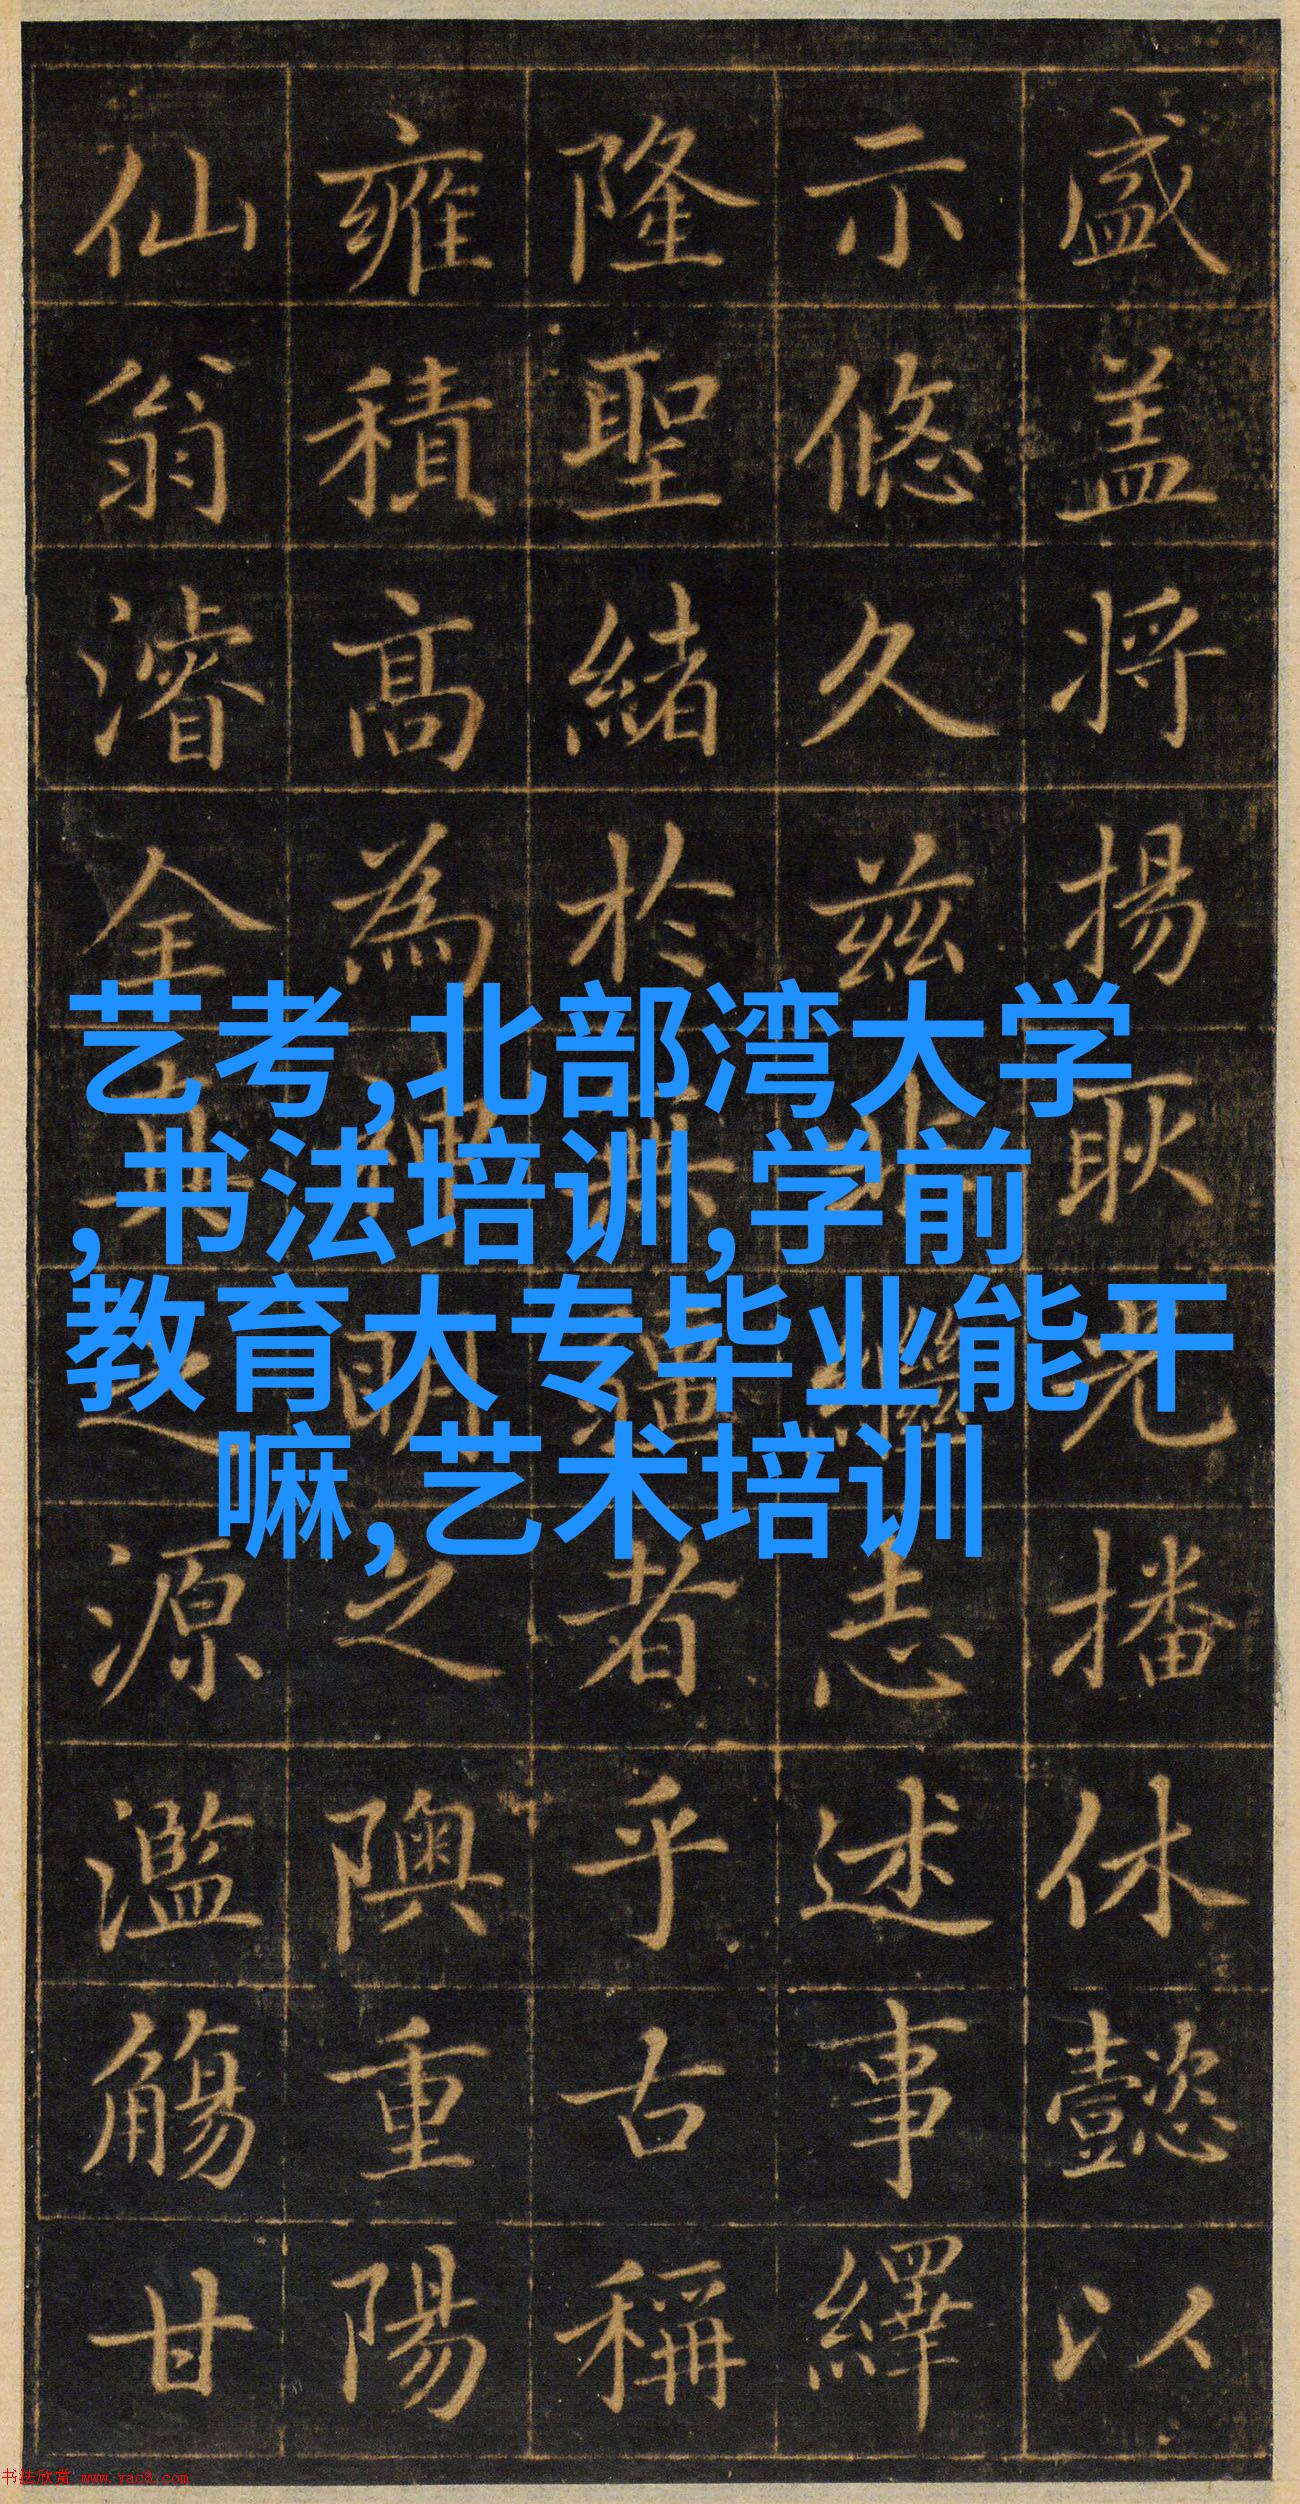 盛盖将揚耿光播休懿以
示悠久兹繼志述事繹
隆聖緒於無疆者乎古稱
雍積高為神明之隩重陽
仙翁濬全真之源濫觴甘
艺考,北部湾大学
,书法培训,学前
教育大专毕业能干
嘛,艺术培训
书法欣赏 www.yac8.com